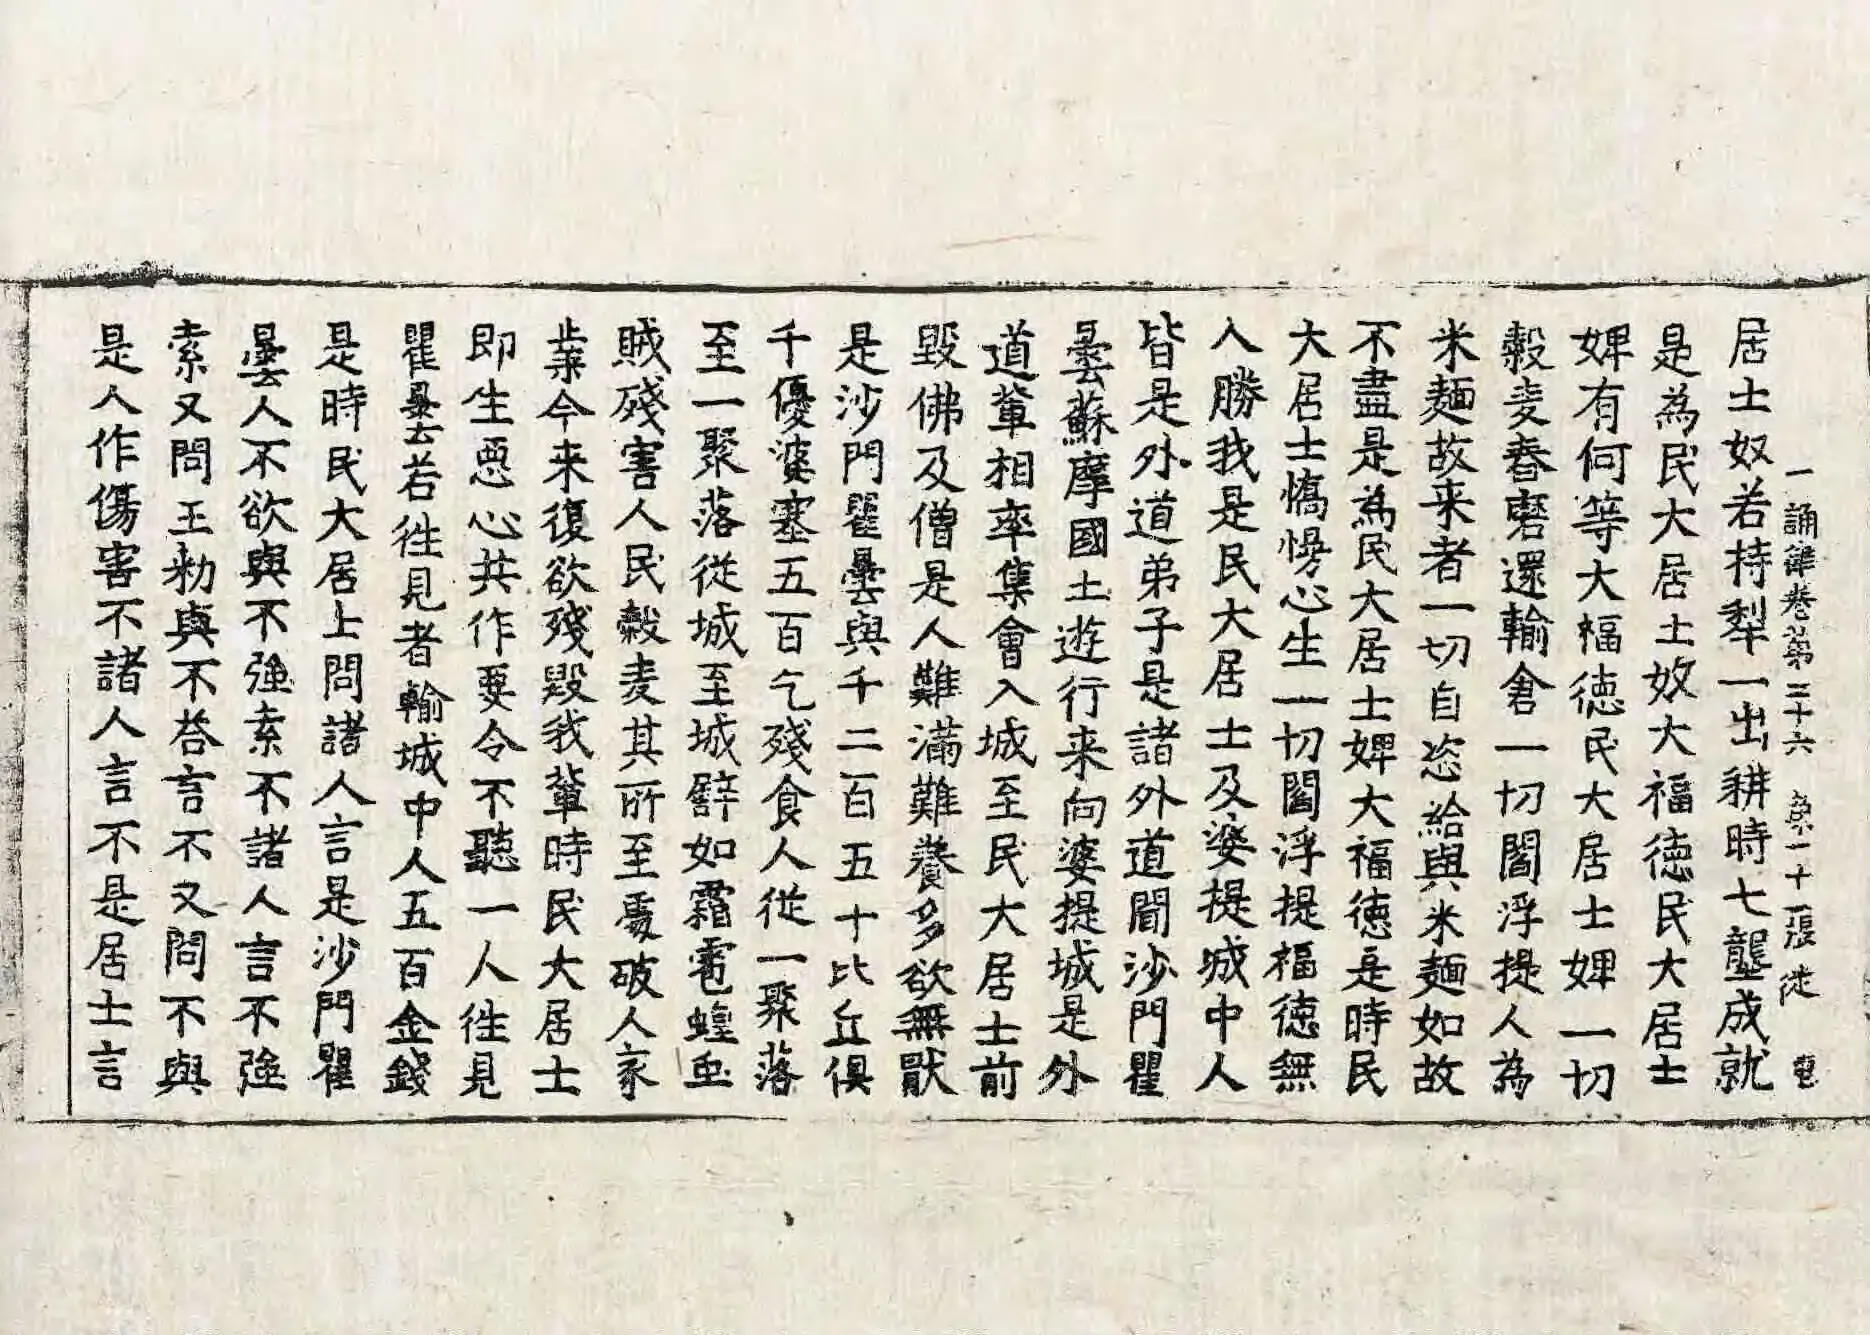 一誦律卷第三十六 第二十一張 従
居士奴若持犁一出耕時七壟成就
是為民大居士奴大福徳民大居士
婢有何等大福徳民大居士婢一切
穀麦舂磨還輸倉一切閻浮提人為
米麺故来者一切自恣給與米麺如故
不盡是為民大居士婢大福徳是時民
大居士憍慢心生一切閻浮提福徳無
人勝我是民大居士及婆提城中人
皆是外道弟子是諸外道聞沙門瞿
曇蘇摩國土遊行来向婆提城是外
道輩相率集會入城至民大居士前
毀佛及僧是人難滿難養多欲無猒
是沙門瞿曇與千二百五十比丘俱
千優婆塞五百乞殘食人従一聚落
至一聚落従城至城譬如霜雹蝗虫
賊殘害人民穀麦其所至處破人家
業今来復欲殘毀我輩時民大居士
即生悪心共作要令不聽一人徃見
瞿曇若徃見者輸城中人五百金錢
是時民大居士問諸人言是沙門瞿
曇人不欲與不強索不諸人言不強
索又問王勑與不荅言不又問不與
是人作傷害不諸人言不是居士言